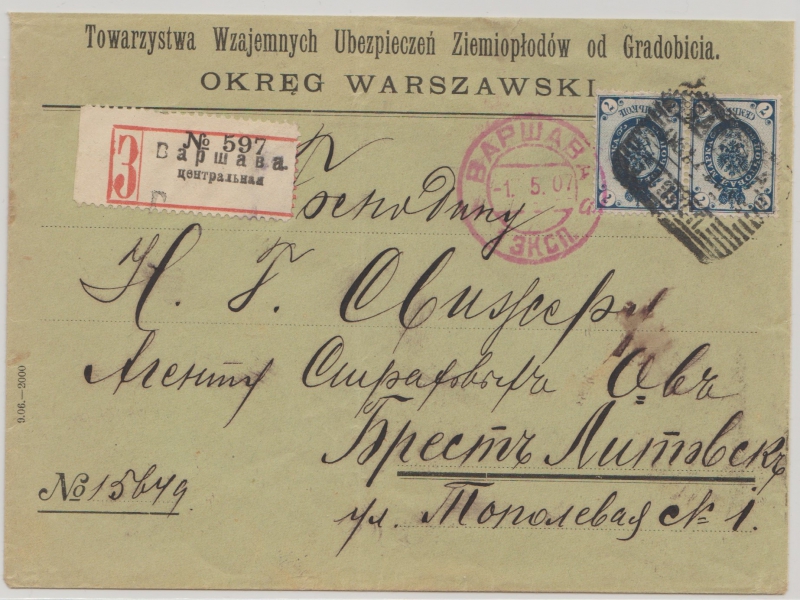 Towarzystwa Wzajemnych Ubezpieczeń Ziemiopłodów od Gradobicia.
OKRĘG WARSZAWSKI
№ 597
З
Варшава.
центральная
ВАРШАВА
-1. 5. 07
ЭКСП.
7 7
Господину
Н. Г.
Агенту Страховыхъ О-въ
Брестъ Литовскъ
ул. Тополевая № 1.
№ 15649
9.06.—2000